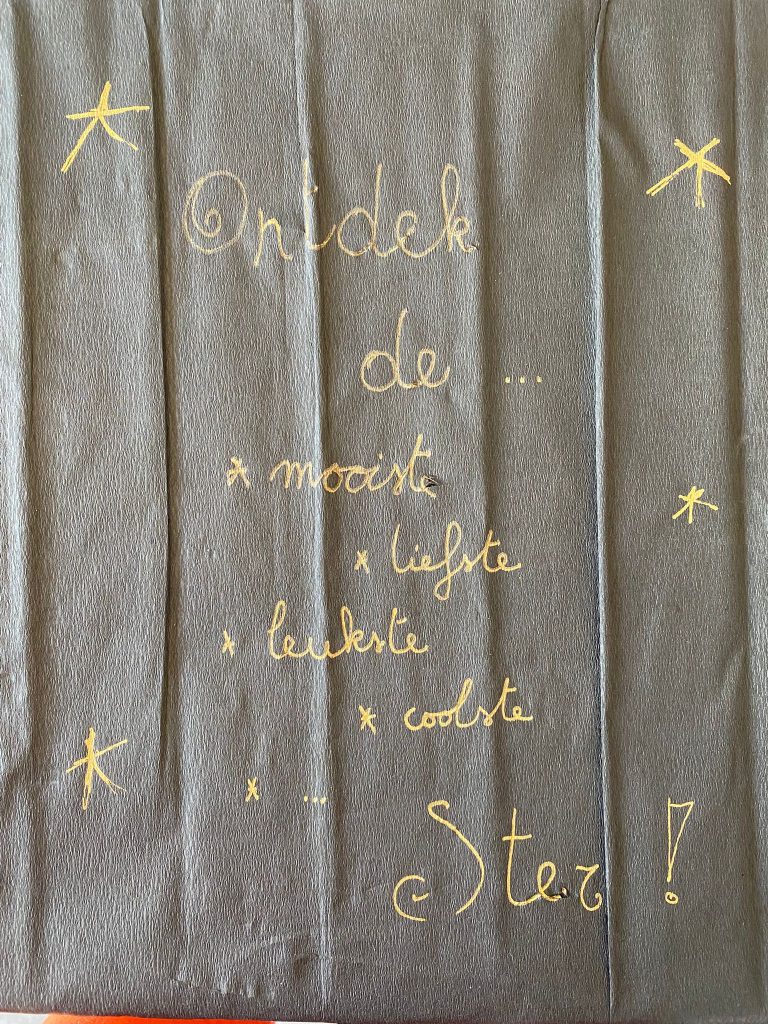 Ontdek
de ...
* mooiste
* liefste
* leukste
* coolste
* ...
Ster !